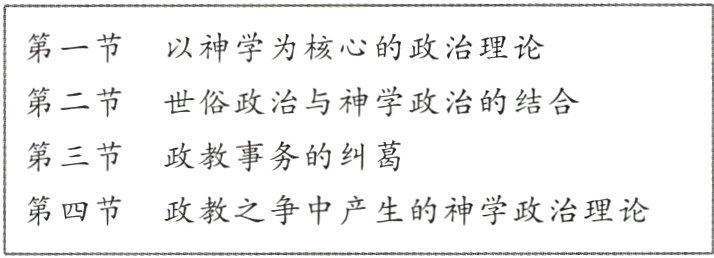 第一节 以神学为核心的政治理论
第二节 世俗政治与神学政治的结合
第三节 政教事务的纠葛
第四节 政教之争中产生的神学政治理论